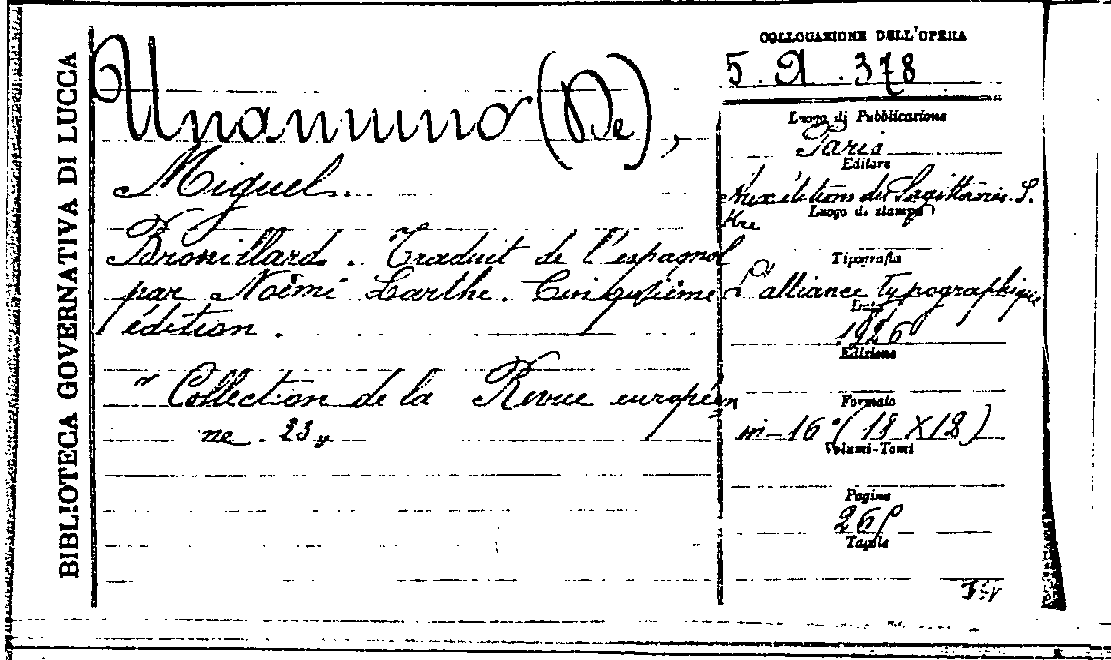 BIBLIOTECA GOVERNATIVA DI LUCCA
Unamuno (De),
Miguel.
Brouillard. Traduit de l'espagnol
par Noémi Larthe. Cinquième
édition.
" Collection de la Revue européen
ne. 23 "
COLLOCAZIONE DELL'OPERA
5. A. 378
Luogo di Pubblicazione
Paris
Editore
Aux éditions du Sagittaire. S.
Kra
Luogo di stampa
Tipografia
L'alliance typographique
Data
1926
Edizione
Formato
in-16° (18 X 12)
Volumi-Tomi
Pagine
Tavole